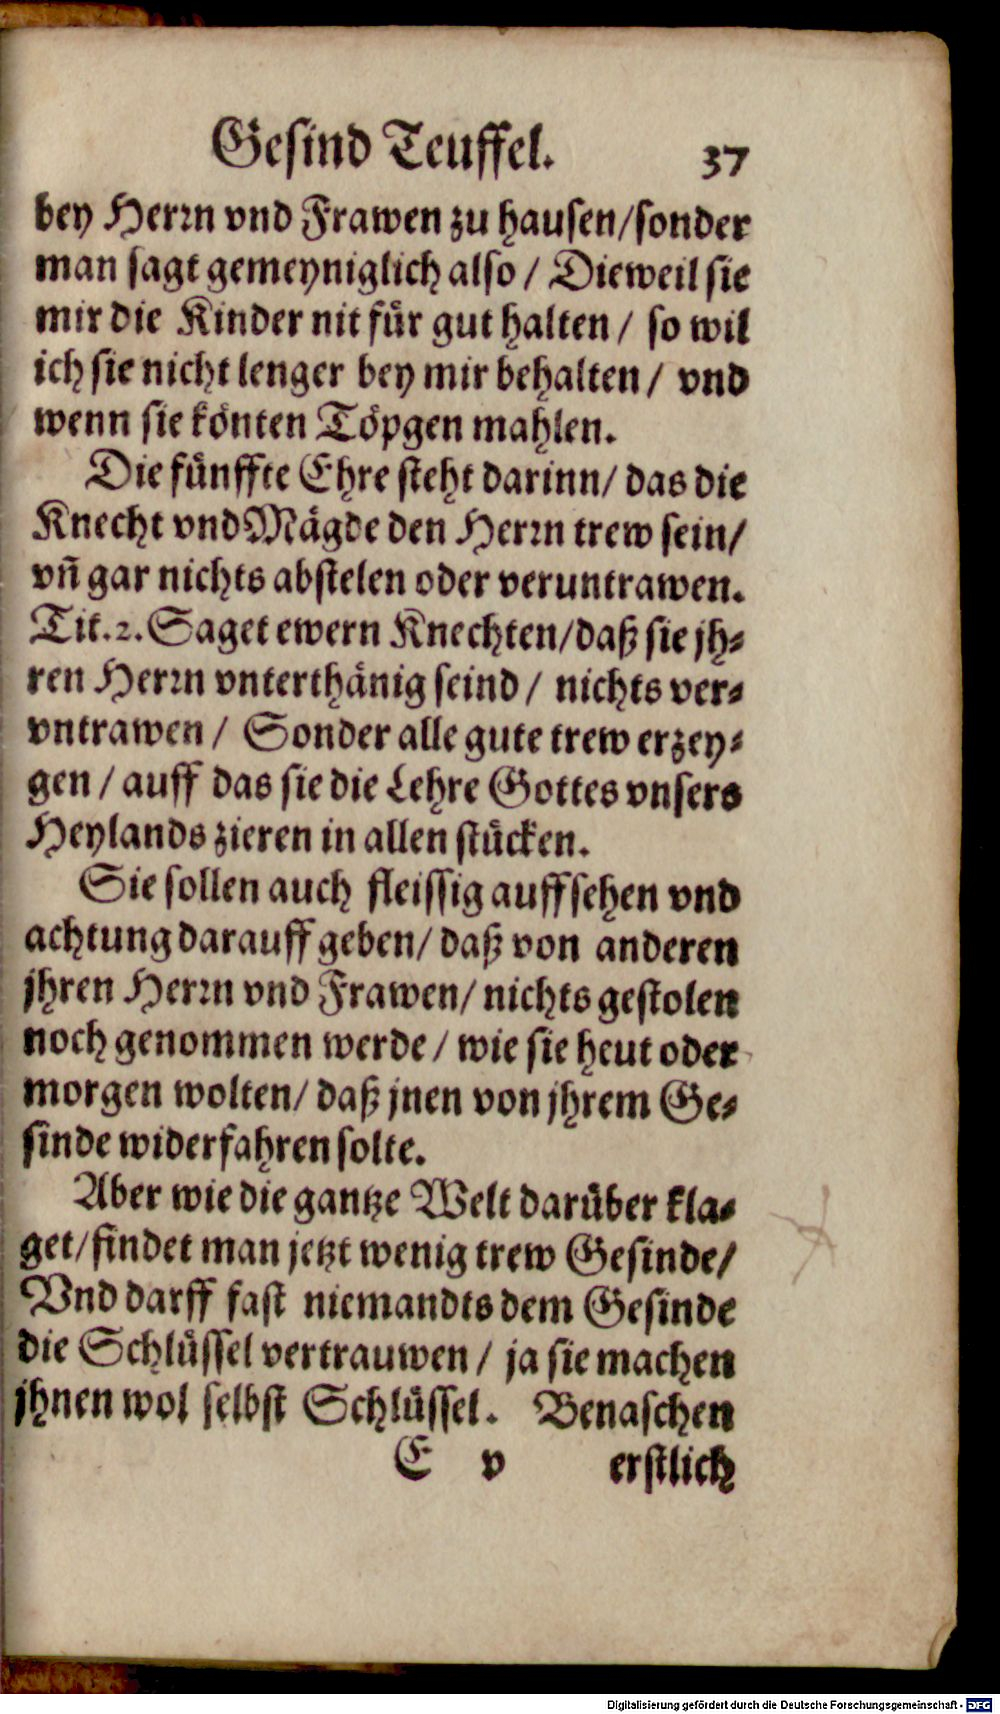 Gesind Teuffel. 37
bey Herrn vnd Frawen zu hausen/sonder
man sagt gemeyniglich also / Dieweil sie
mir die Kinder nit für gut halten / so wil
ich sie nicht lenger bey mir behalten / vnd
wenn sie könten Töpgen mahlen.
Die fünffte Ehre steht darinn/ das die
Knecht vnd Mägde den Herrn trew sein/
vñ gar nichts abstelen oder veruntrawen.
Tit.2. Saget ewern Knechten/daß sie jh-
ren Herrn vnterthänig seind / nichts ver-
vntrawen / Sonder alle gute trew erzey-
gen / auff das sie die Lehre Gottes vnsers
Heylands zieren in allen stücken.
Sie sollen auch fleissig auffsehen vnd
achtung darauff geben/ daß von anderen
jhren Herrn vnd Frawen/ nichts gestolen
noch genommen werde / wie sie heut oder
morgen wolten/ daß jnen von jhrem Ge-
sinde widerfahren solte.
Aber wie die gantze Welt darüber kla-
get/findet man jetzt wenig trew Gesinde/
Vnd darff fast niemandts dem Gesinde
die Schlüssel vertrauwen / ja sie machen
jhnen wol selbst Schlüssel. Benaschen
E v erstlich
Digitalisierung gefördert durch die Deutsche Forschungsgemeinschaft - DFG